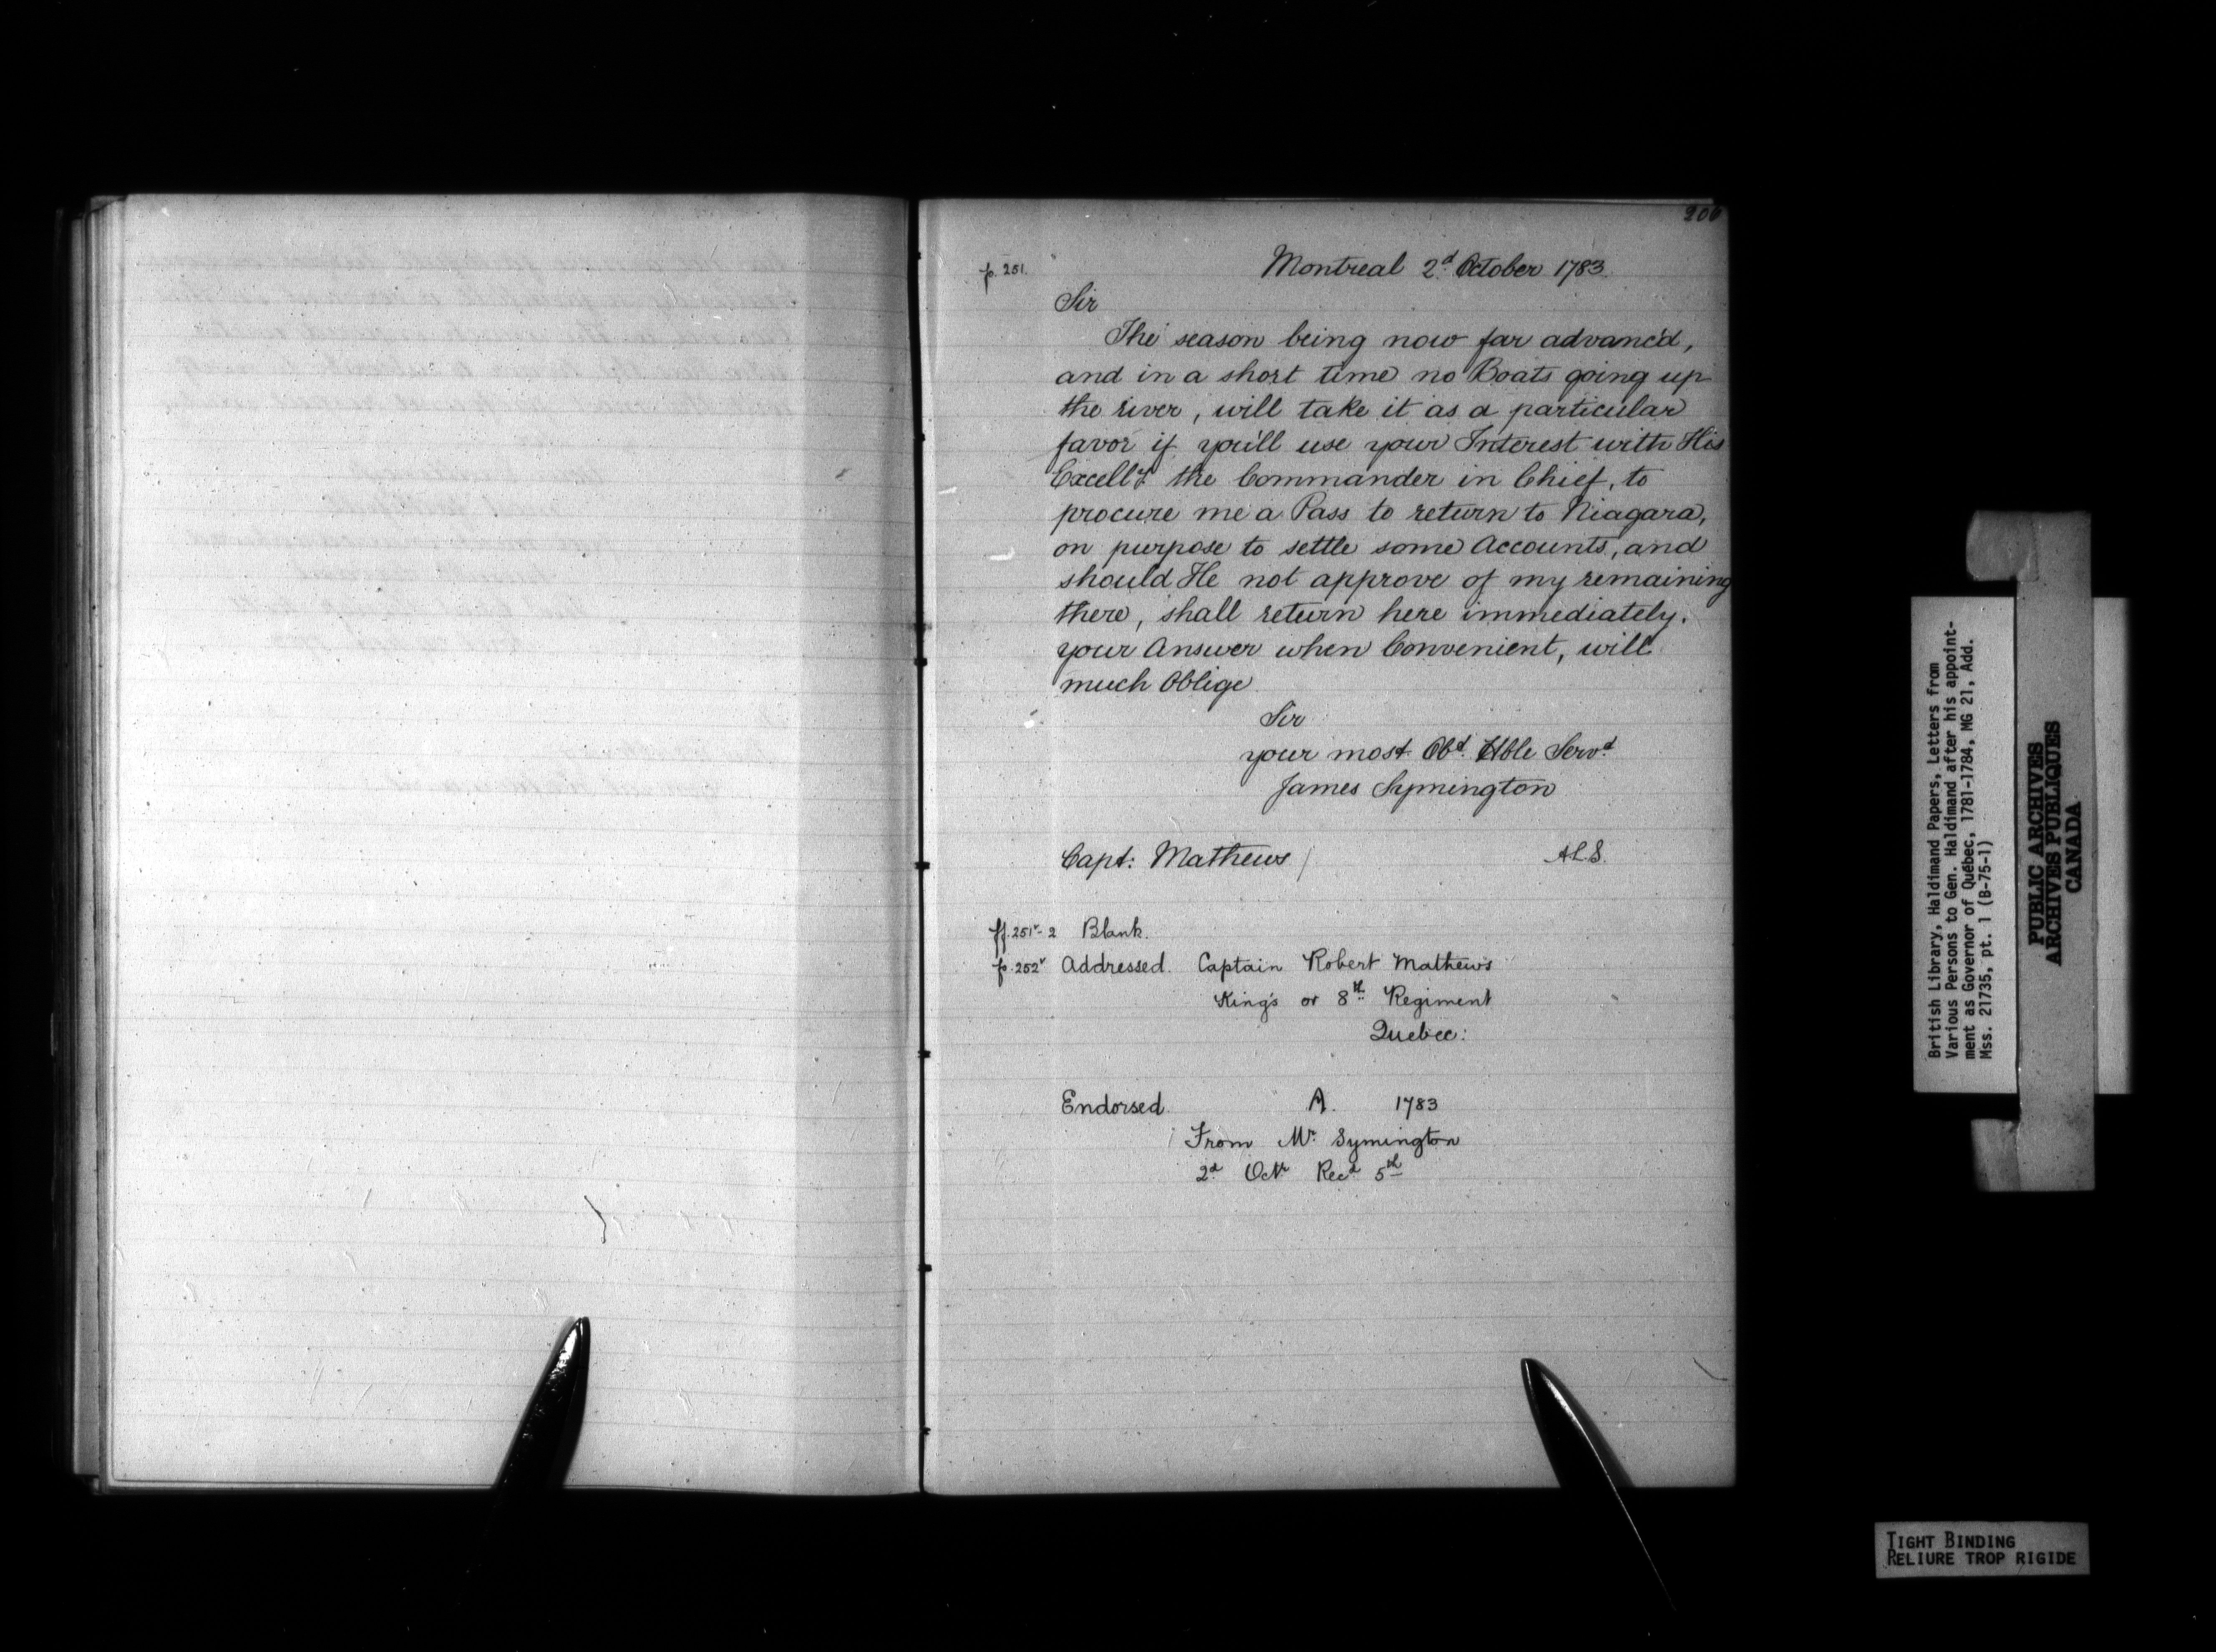 206
f. 251.
Montreal 2d. October 1783.
Sir
The season being now far advanc'd,
and in a short time no Boats going up
the river, will take it as a particular
favor if you'll use your Interest with His
Excelly. the Commander in Chief, to
procure me a Pass to return to Niagara,
on purpose to settle some Accounts, and
should He not approve of my remaining
there, shall return here immediately.
your Answer when Convenient, will
much Oblige
Sir
your most Obd. Hble Servd.
James Symington
Capt: Mathews / A.L.S.
ff. 251v-2 Blank.
f. 252v Addressed. Captain Robert Mathews
King's or 8th Regiment
Quebec:
Endorsed. A. 1783
From Mr. Symington
2d Octr Recd 5th
British Library, Haldimand Papers, Letters from
Various Persons to Gen. Haldimand after his appoint-
ment as Governor of Québec, 1781-1784, MG 21, Add.
Mss. 21735, pt. 1 (B-75-1)
PUBLIC ARCHIVES
ARCHIVES PUBLIQUES
CANADA
TIGHT BINDING
RELIURE TROP RIGIDE